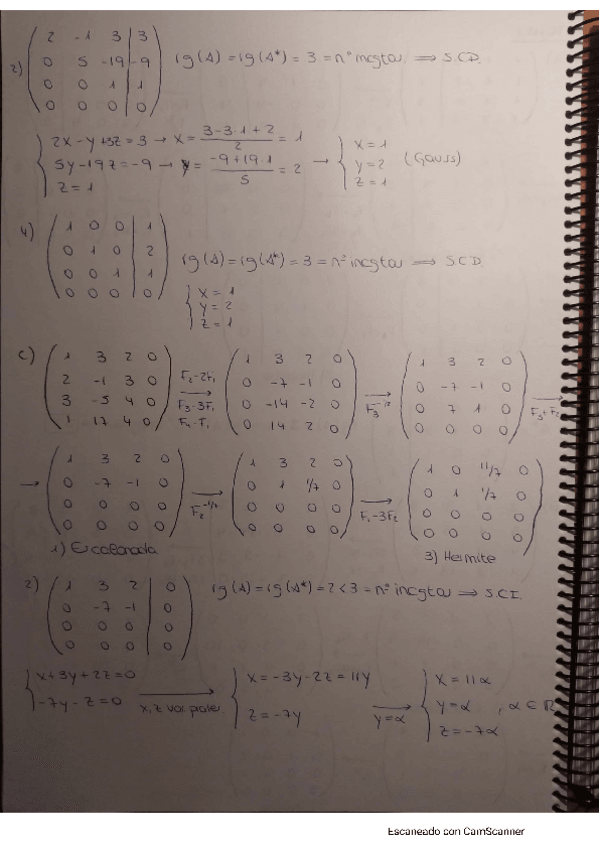 2) ( 2 -1 3 | 3
0 5 -19 | -9
0 0 1 | 1
0 0 0 | 0 ) rg(A) = rg(A*) = 3 = nº incgtas. ⟹ S.C.D.
{ 2x - y + 3z = 3 → x = (3 - 3·1 + 2)/2 = 1
5y - 19z = -9 → y = (-9 + 19·1)/5 = 2 → { x = 1
y = 2
z = 1 (Gauss)
z = 1
4) ( 1 0 0 | 1
0 1 0 | 2
0 0 1 | 1
0 0 0 | 0 ) rg(A) = rg(A*) = 3 = nº incgtas ⟹ S.C.D.
{ x = 1
y = 2
z = 1
c) ( 1 3 2 0
2 -1 3 0
3 -5 4 0
1 17 4 0 ) F2-2F1 → F3-3F1 F4-F1
( 1 3 2 0
0 -7 -1 0
0 -14 -2 0
0 14 2 0 ) → F3·-1/2
( 1 3 2 0
0 -7 -1 0
0 7 1 0
0 0 0 0 ) → F3+F2
→ ( 1 3 2 0
0 -7 -1 0
0 0 0 0
0 0 0 0 ) → F2·-1/7
( 1 3 2 0
0 1 1/7 0
0 0 0 0
0 0 0 0 ) → F1-3F2
( 1 0 11/7 0
0 1 1/7 0
0 0 0 0
0 0 0 0 )
1) Escalonada
3) Hermite
2) ( 1 3 2 | 0
0 -7 -1 | 0
0 0 0 | 0
0 0 0 | 0 ) rg(A) = rg(A*) = 2 < 3 = nº incgtas ⟹ S.C.I.
{ x + 3y + 2z = 0
-7y - z = 0 → x, z var. ppales.
{ x = -3y - 2z = 11y
z = -7y → y = α
{ x = 11α
y = α , α ∈ ℝ
z = -7α
Escaneado con CamScanner